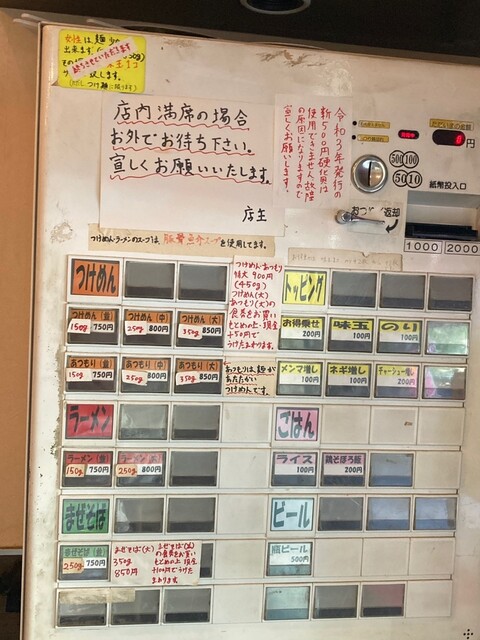 女性は、麺少
出来ます。
終らせていただきます
味玉1コ
店内満席の場合
お外でお待ち下さい。
宜しくお願いいたします。
店主
令和3年発行の
新500円硬化は
使用できません。故障
の原因になりますので
宜しくお願いします。
円
500 100
50 10
紙幣投入口
おつり 返却
1000 2000
つけめんラーメンのスープは、豚骨魚介スープを使用してます。
つけめん
トッピング
つけめん・あつもり
特大 900円
(450g)
つけめん(大)
あつもり(大)の
食券をお買い
もとめの上・現金
+50円で
うけたまわります。
つけめん(並) 150g 750円
つけめん(中) 250g 800円
つけめん(大) 350g 850円
お得乗せ 200円
味玉 100円
のり 100円
あつもり(並) 150g 750円
あつもり(中) 250g 800円
あつもり(大) 350g 850円
あつもりは、麺が
あたたかい
つけめんです。
メンマ増し 100円
ネギ増し 100円
チャーシュー増し 200円
ラーメン
ごはん
ラーメン(並) 150g 750円
250g 800円
ライス 100円
鶏そぼろ飯 200円
まぜそば
ビール
まぜそば(並) 250g 750円
まぜそば(大)
350g
850円
まぜそば(並)
の食券をお買い
もとめの上・現金
+100円でうけた
まわります
瓶ビール 500円